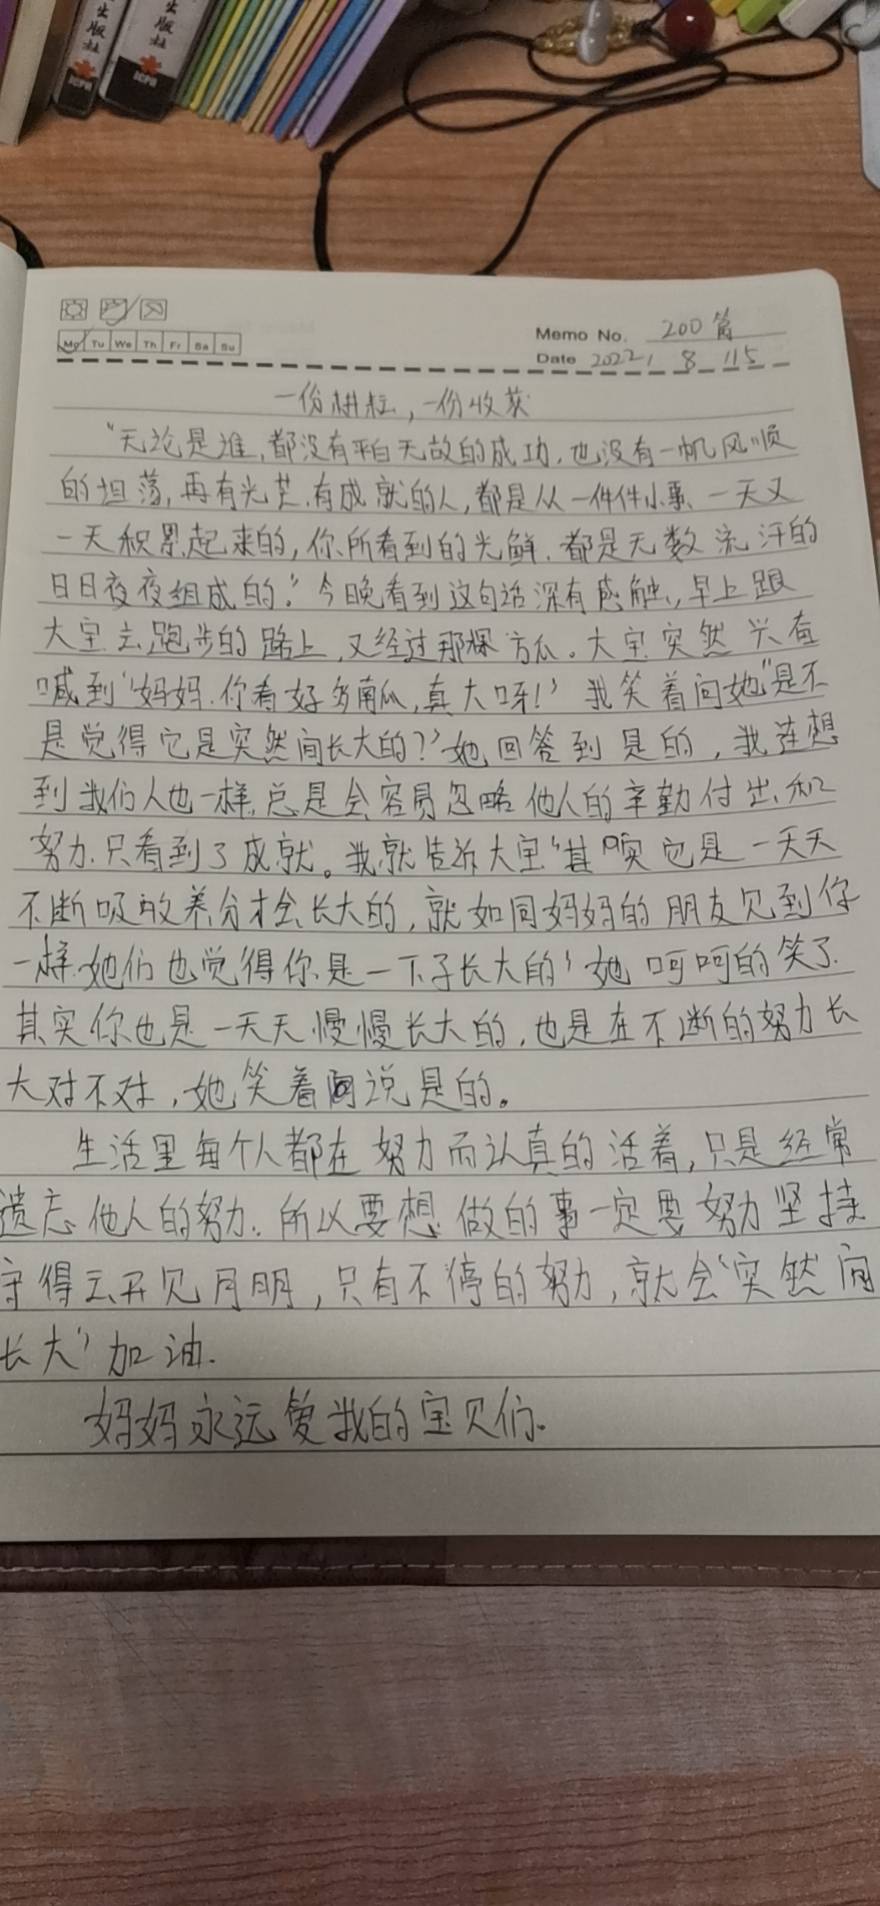 出版社
出版社
Memo No. 200篇
Mo Tu We Th Fr Sa Su
Date 2022 / 8 / 15
一份耕耘，一份收获
“无论是谁，都没有平白无故的成功，也没有一帆风顺
的坦荡，再有光芒、有成就的人，都是从一件件小事、一天又
一天积累起来的，你所看到的光鲜，都是无数流汗的
日日夜夜组成的。”今晚看到这句话深有感触，早上跟
大宝去跑步的路上，又经过那棵方瓜。大宝突然兴奋
喊到“妈妈，你看好多南瓜，真大呀！”我笑着问她“是不
是觉得它是突然间长大的？”她回答到是的，我联想
到我们人也一样，总是会容易忽略他人的辛勤付出、和
努力，只看到了成就。我就告诉大宝“其实它是一天天
不断吸收养分才会长大的，就如同妈妈的朋友见到你
一样，她们也觉得你是一下子长大的”她呵呵的笑了，
其实你也是一天天慢慢长大的，也是在不断的努力长
大对不对，她笑着说是的。
生活里每个人都在努力而认真的活着，只是经常
遗忘他人的努力，所以要想做的事一定要努力坚持
守得云开见月明，只有不停的努力，就会“突然间
长大”加油.
妈妈永远爱我的宝贝们.